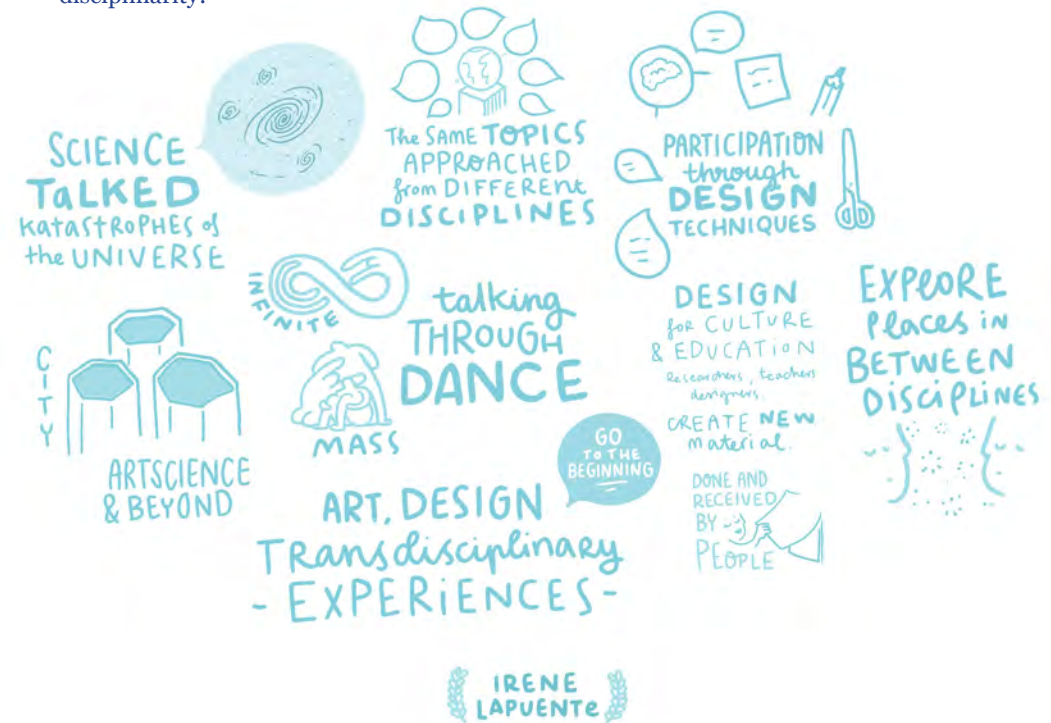 disciplinarity.
SCIENCE
TALKED
KATASTROPHES of
the UNIVERSE
The SAME TOPICS
APPROACHED
from DIFFERENT
DISCIPLINES
PARTICIPATION
through
DESIGN
TECHNIQUES
INFINITE
talking
THROUGH
DANCE
MASS
CITY
ARTSCIENCE
& BEYOND
DESIGN
for CULTURE
& EDUCATION
Researchers, teachers
designers.
CREATE NEW
material.
DONE AND
RECEIVED
BY
PEOPLE
EXPLORE
Places in
BETWEEN
DISCIPLINES
GO
TO THE
BEGINNING
ART, DESIGN
TRansdisciplinary
- EXPERIENCES -
IRENE
LAPUENTE